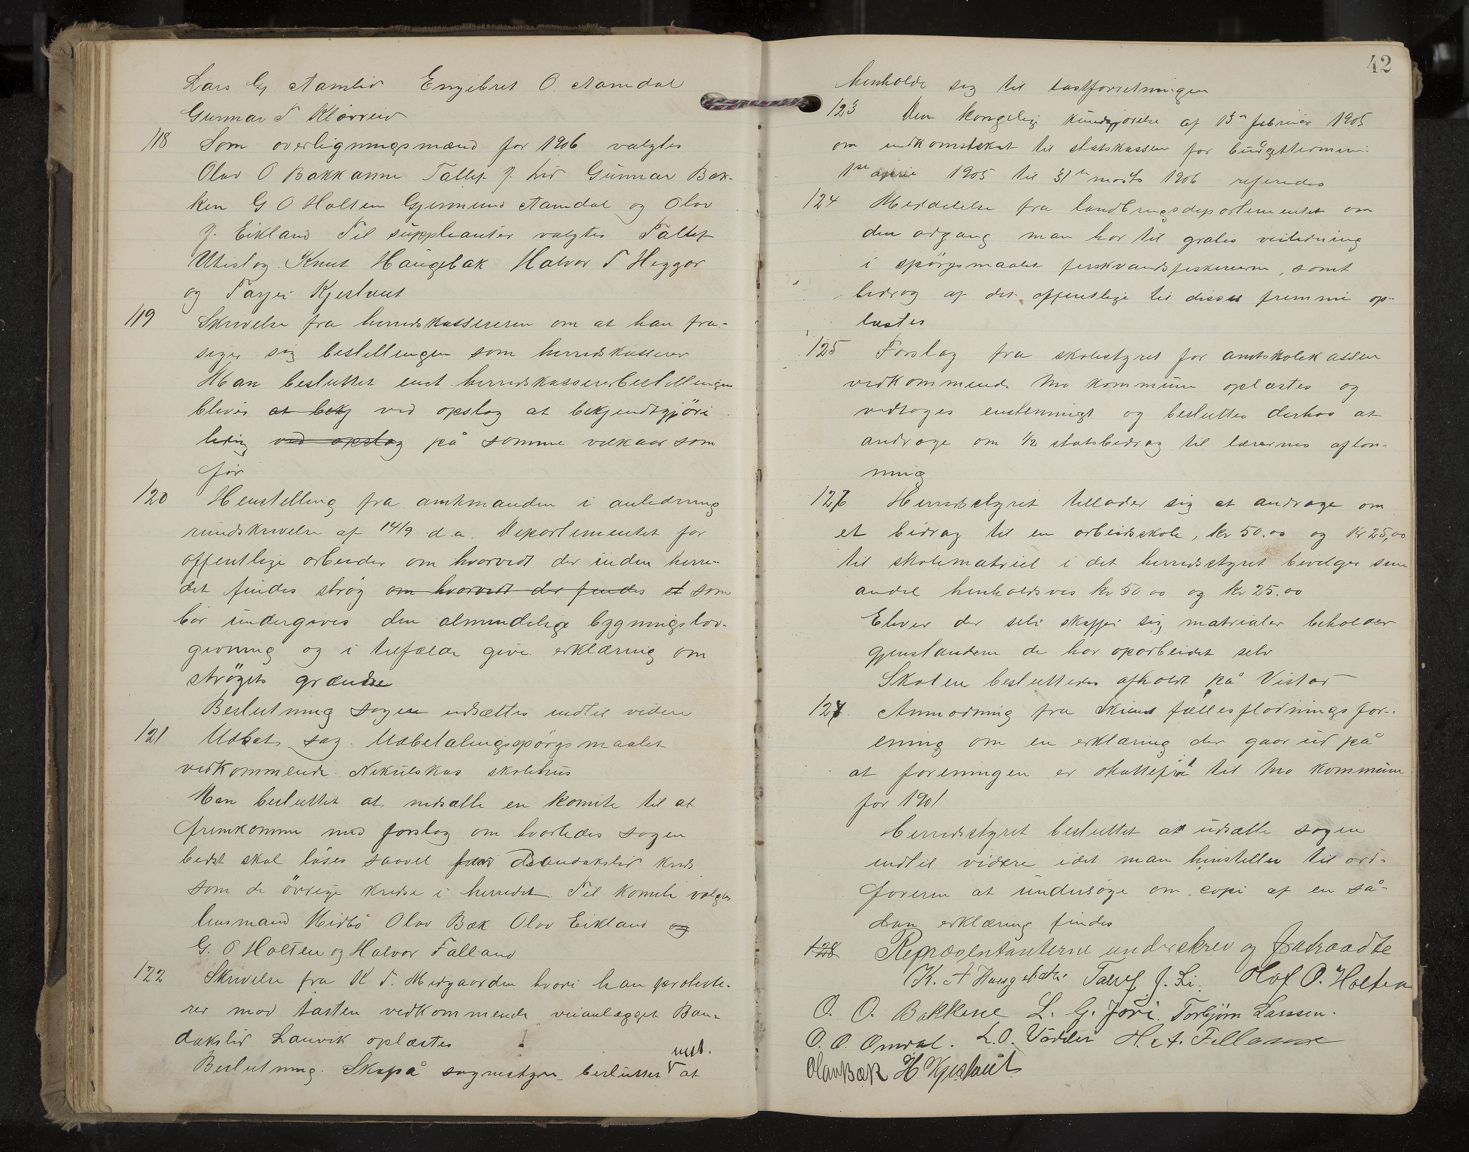 Lars G Aamlid Engebret O Aamdal
Gunnar T Kløvreid
118 Som overligningsmænd for 1906 valgtes
Olav O Bakkanne Tallef J. Lid Gunnar Bak-
ken G O Holten Gjermund Aamdal og Olav
J. Eikland Til suppleanter valgtes Tallef
Utistog Knut Haugebak Halvor T Heggar
og Tarjei Kjeslaut
119 Skrivelse fra herredskassereren om at han fra-
siger sig bestillingen som herredskasserer
Man besluttet end herredskassererbestillingen
blives at bekj ved opslag at bekjendtgjöri
ledig ved opslag på samme vilkaar som
för
120 Henstilling fra amtmanden i anledning
rundskrivelse af 14/9 d.a. Departementet for
offentlige arbeider om hvorvidt der inden herre-
det findes strög om hvorvidt der findes et som
bör undergives den almindelige bygningslov-
givning og i tilfælde give erklæring om
strögets grændse
Beslutning sagen udsættes indtil videre
121 Udsat sag. Udbetalingsspörgsmaalet
vedkommende Nikulskas skolehus
Man besluttet at nedsætte en komite til at
fremkomme med forslag om hvorledes sagen
bedst skal löses saavel for Dandakslid kreds
som de övrige kredse i herredet Til komite valgtes
lensmand Midbö Olav Bæk Olav Eikland og
G. O Holten og Halvor Falland
122 Skrivelse fra K T. Midgaarden hvori han proteste-
rer mod taxten vedkommende veianlægget Dan-
dakslid Lauvik oplæstes
Beslutning. Skapå sognestyre besluttet indst. at
42
henholde sig til taxtforretningen
123 Den kongelig kundgjörelse af 13de februar 1905
om indkomstskat til statskassen for budgetterminen
1ste april 1905 til 31te marts 1906 refereredes
124 Meddelelse fra landbrugsdepartementet om
den adgang man har til gratis veiledning
i spörgsmaalet ferskvandsfiskeriene, samt
bidrag af det offentlige til disses fremme op-
læstes
125 Forslag fra skolestyret for amtskolekassen
vedkommende Mo kommune oplæstes og
vedtoges enstemmigt og besluttes derhos at
andrage om 1/2 statsbidrag til lærernes aflön-
ning
126 Herredsstyret tillader sig at andrage om
et bidrag til en arbeidsskole, kr 50.00 og kr 25,00
til skolematriel i det herredsstyret bevilger sine
andel henholdsvis kr 50 00 og kr 25.00
Elever der selv skaffer sig matrialer beholder
gjenstandene de har oparbeidet selv
Skolen besluttedes afholdt på Vistad
127 Anmodning fra Skiens fællesflödningsfor-
ening om en erklæring der gaar ud på
at foreningen er skattefri til Mo kommune
for 1901
Herredsstyret besluttet at udsætte sagen
indtil videre idet man henstiller til ord-
föreren at undersöge om copi af en så-
dan erklæring findes
128 Repræsentanterne underskrev og fratraadte
K. T Haugebak Tallef J. Li. Olof O. Holten
O. O. Bakkene L. G. Jöri Torbjörn Larssen.
O. O. Omdal. L. O. Vadder H. A. Felland
Olav Bæk H Kjeslaut